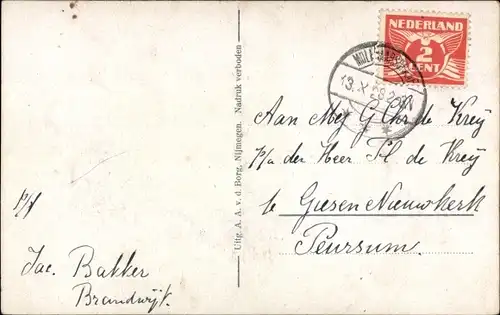 NEDERLAND
2
CENT
13. X 28. 2
Aan Mej G Chr de Kreij
p/a der Heer Fl de Kreij
te Giesen Nieuwkerk
Peursum.
p/f
Jac. Bakker
Brandwijk.
Uitg. A. A. v. d. Borg, Nijmegen. Nadruk verboden